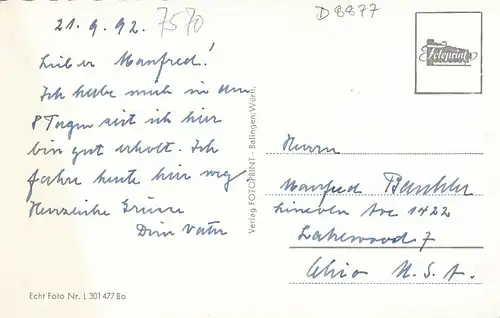 21.9.92. 7570
D8877
Lieber Manfred!
Ich habe mich in den
8 Tagen seit ich hier
bin gut erholt. Ich
fahre heute hier weg
Herzliche Grüsse
Dein Vater
Verlag FOTOPRINT - Balingen/Württ.
Fotoprint
Herrn
Manfred
Lincoln Ave 1422
Lakewood 7
Ohio U.S.A.
Echt Foto Nr. L 301 477 Bo